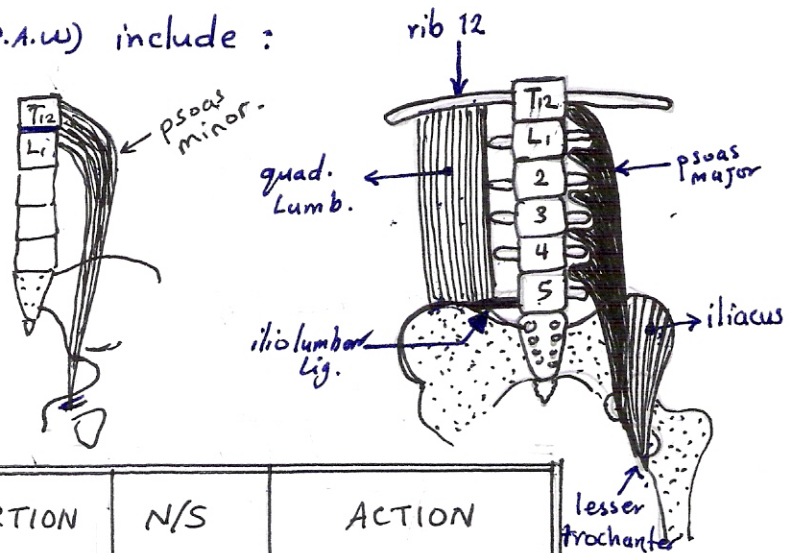 P.A.W) include :
rib 12
T12
L1
psoas
minor.
T12
L1
2
3
4
5
quad.
Lumb.
psoas
major
iliolumbar
Lig.
iliacus
lesser
trochanter
RTION N/S ACTION